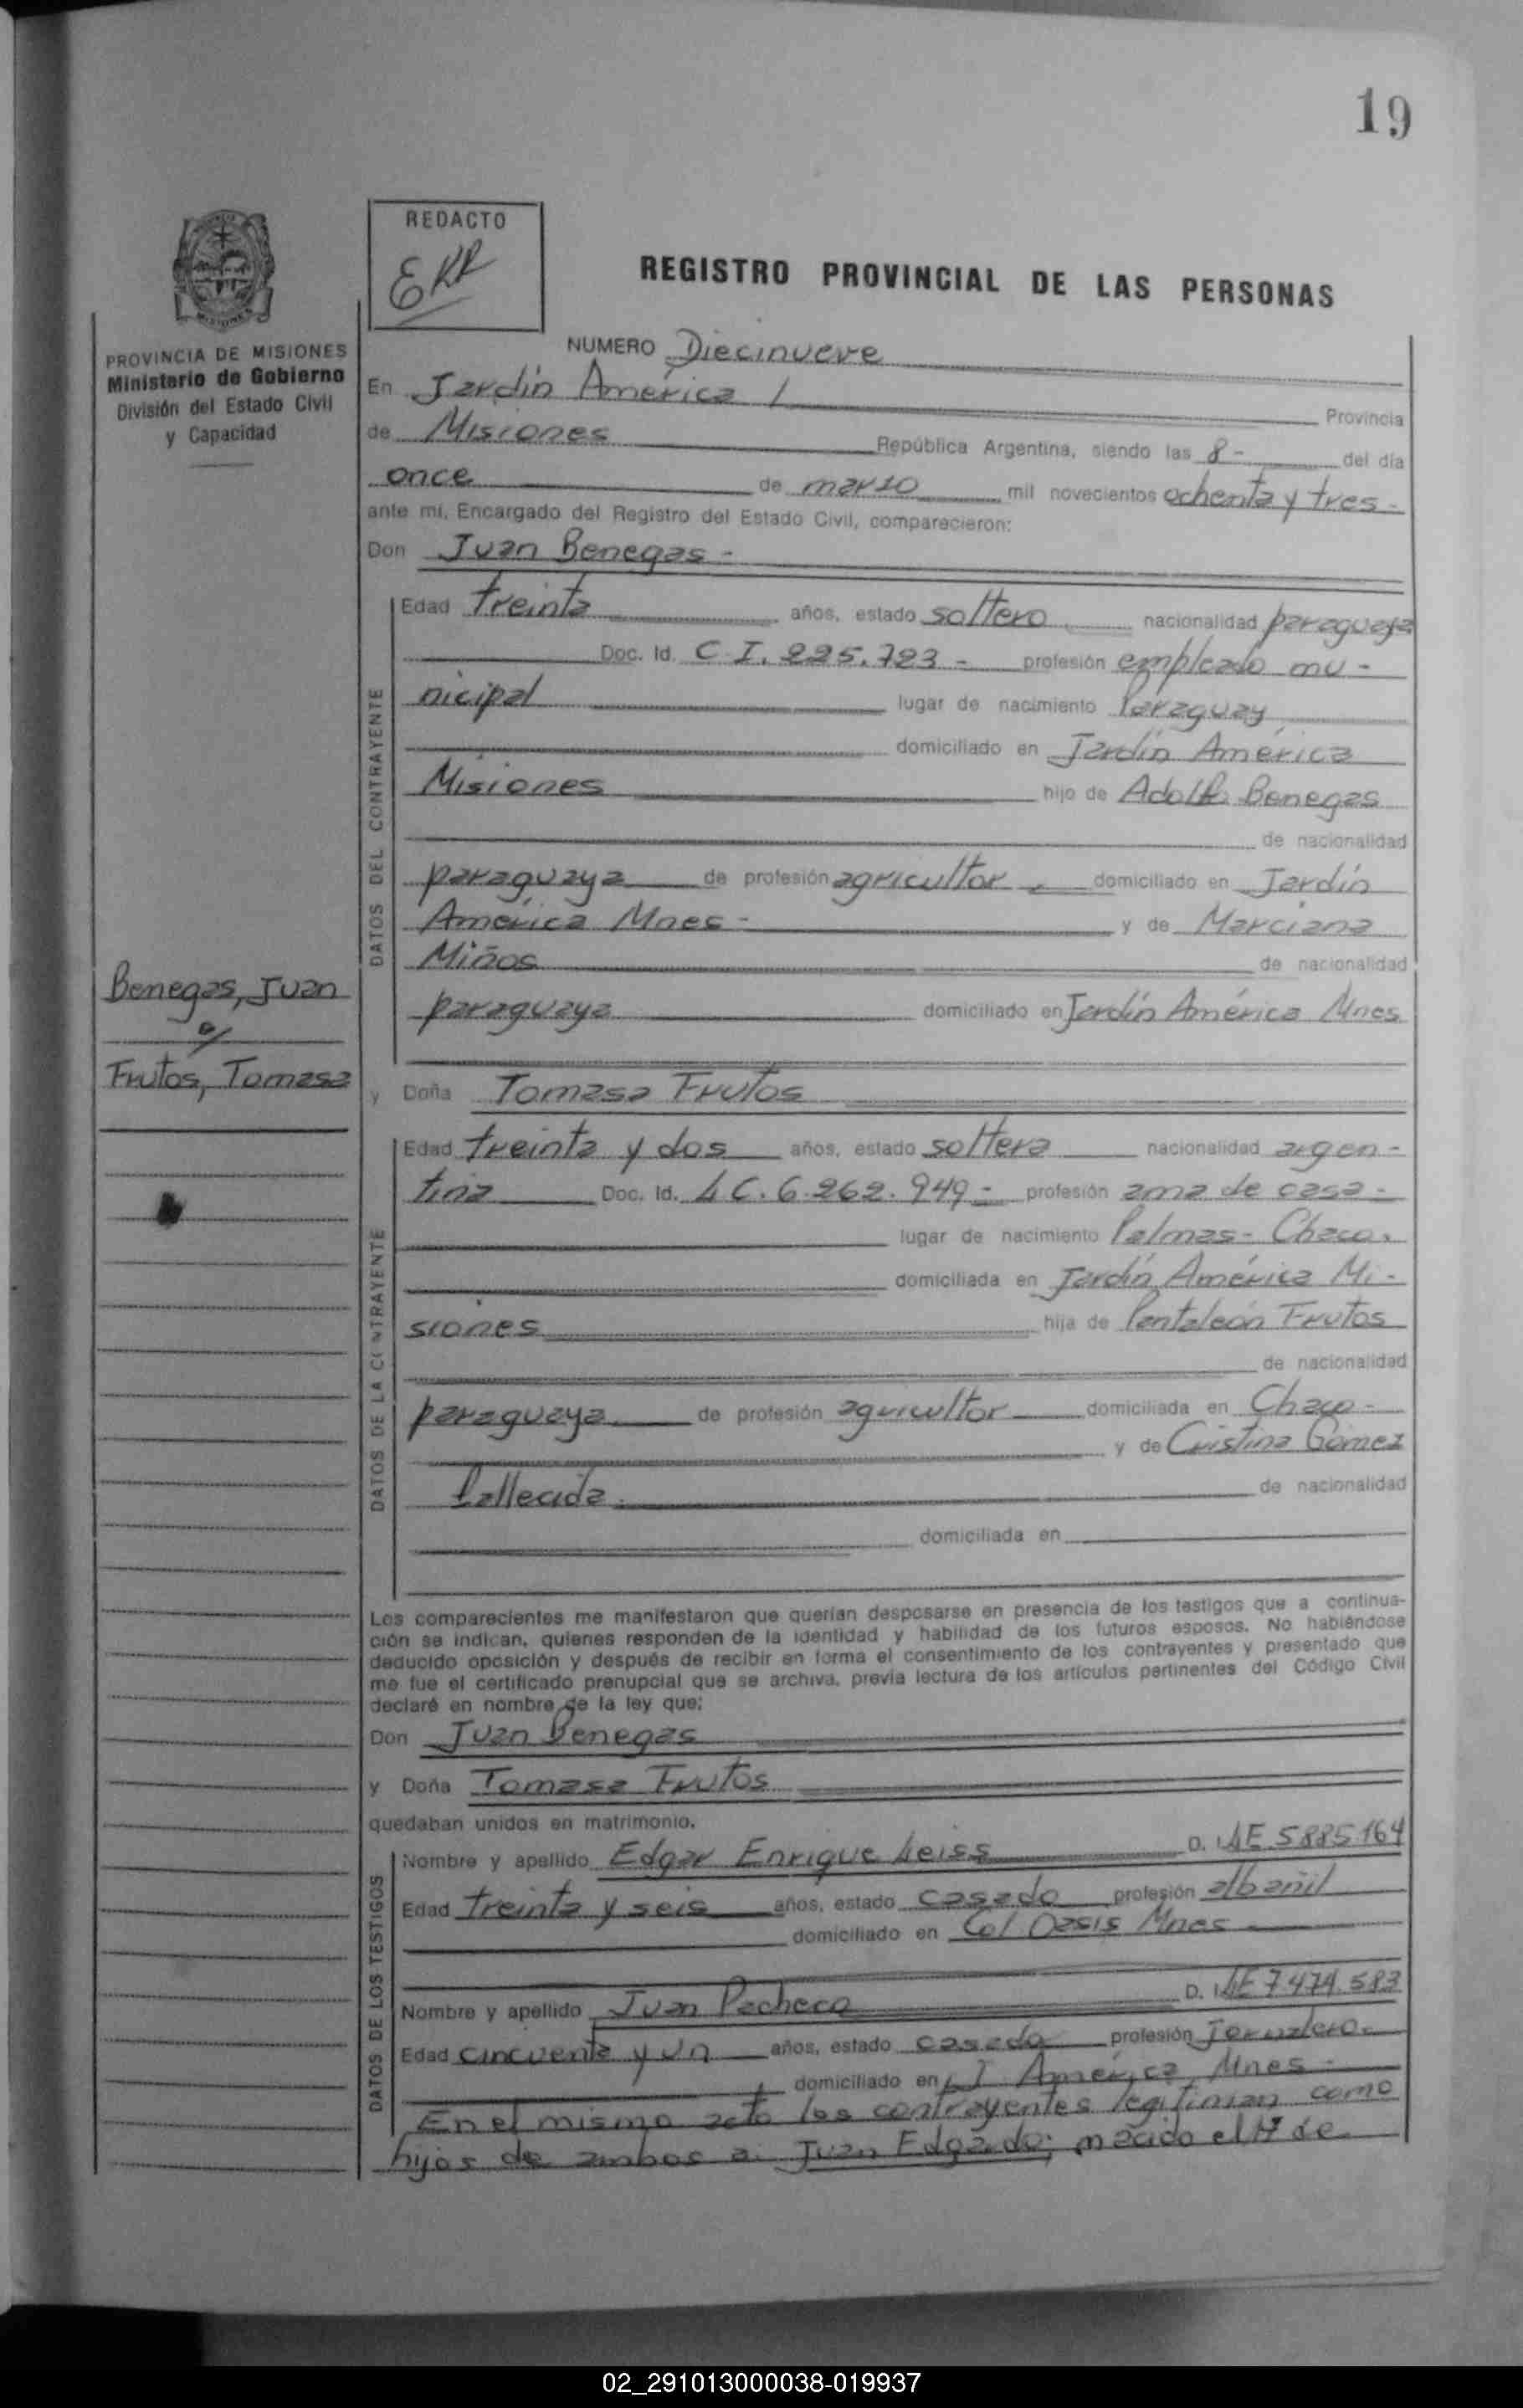 19
REDACTO
EKR
REGISTRO PROVINCIAL DE LAS PERSONAS
MISIONES
PROVINCIA DE MISIONES
Ministerio de Gobierno
División del Estado Civil
y Capacidad
NUMERO Diecinueve
En Jardín América /
Provincia
de Misiones República Argentina, siendo las 8 - del día
once de marzo mil novecientos ochenta y tres -
ante mí, Encargado del Registro del Estado Civil, comparecieron:
Don Juan Benegas -
DATOS DEL CONTRAYENTE
Edad treinta años, estado soltero nacionalidad paraguaya
Doc. Id. C I. 225.723 - profesión empleado mu -
nicipal lugar de nacimiento Paraguay
domiciliado en Jardín América
Misiones hijo de Adolfo Benegas
de nacionalidad
paraguaya de profesión agricultor . domiciliado en Jardín
América Mnes - y de Marciana
Miños de nacionalidad
paraguaya domiciliado en Jardín América Mnes
Benegas, Juan
c/
Frutos, Tomasa
y Doña Tomasa Frutos
DATOS DE LA CONTRAYENTE
Edad treinta y dos años, estado soltera nacionalidad argen -
tina Doc. Id. LC. 6.262.949 - profesión ama de casa -
lugar de nacimiento Palmas - Chaco.
domiciliada en Jardín América Mi -
siones hija de Pantaleón Frutos
de nacionalidad
paraguaya de profesión agricultor domiciliada en Chaco -
y de Cristina Gomez
fallecida. de nacionalidad
domiciliada en
Los comparecientes me manifestaron que querían desposarse en presencia de los testigos que a continua-
ción se indican, quienes responden de la identidad y habilidad de los futuros esposos. No habiéndose
deducido oposición y después de recibir en forma el consentimiento de los contrayentes y presentado que
me fue el certificado prenupcial que se archiva, previa lectura de los artículos pertinentes del Código Civil
declaré en nombre de la ley que:
Don Juan Benegas
y Doña Tomasa Frutos
quedaban unidos en matrimonio.
DATOS DE LOS TESTIGOS
Nombre y apellido Edgar Enrique Leiss D. I. LE 5885164
Edad treinta y seis años, estado casado profesión albañil
domiciliado en Col Oasis Mnes
Nombre y apellido Juan Pacheco D. I. LE 7.474.583
Edad cincuenta y un años, estado casado profesión Jornalero.
domiciliado en J América Mnes -
En el mismo acto los contrayentes legitiman como
hijos de ambos a: Juan Edgardo; nacido el de
02_291013000038-019937